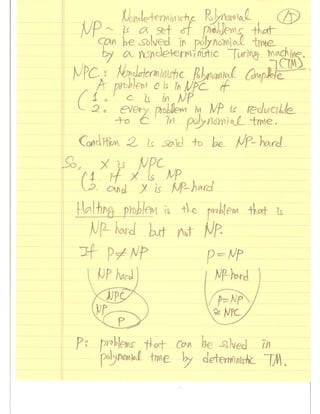 Nondeterministic Polynomial
A
NP ~ is a set of problems that
can be solved in polynomial time
by a nondeterministic Turing machine.
(TM)
NPC: Nondeterministic Polynomial Complete
A problem c is in NPC if
1. c is in NP
2. every problem in NP is reducible
to c in polynomial time.
Condition 2 is said to be NP-hard.
So, X is NPC
1. if X is NP
2. and X is NP-hard
Halting problem is the problem that is
NP hard but not NP.
If P≠NP P=NP
NP hard NP-hard
NPC P=NP
NP ≅ NPC
P
P: problems that can be solved in
polynomial time by deterministic TM.